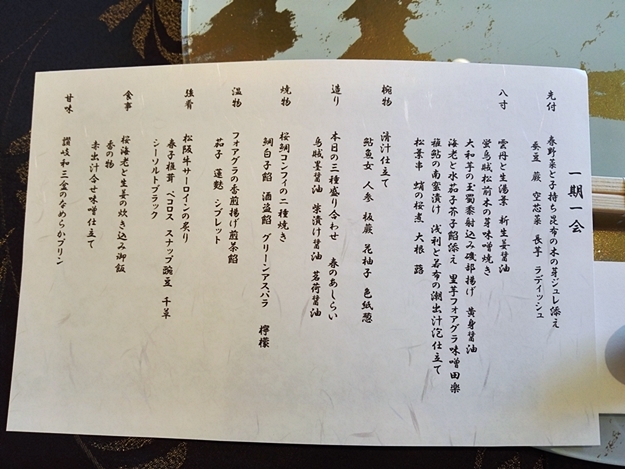 一期一会
先付
春野菜と子持ち昆布の木の芽ジュレ添え
蚕豆 蕨 空芯菜 長芋 ラディッシュ
八寸
雲丹と生湯葉 新生姜醤油
蛍烏賊松前木の芽味噌焼き
大和芋の玉蜀黍射込み磯部揚げ 黄身醤油
海老と水茄子芥子餡添え 里芋フォアグラ味噌田楽
稚鮎の南蛮漬け 浅利と若布の潮出汁泡仕立て
松葉串 蛸の桜煮 大根 蕗
椀物
清汁仕立て
鮎魚女 人参 板蕨 花柚子 色紙葱
造り
本日の三種盛り合わせ 春のあしらい
烏賊墨醤油 紫漬け醤油 茗荷醤油
焼物
桜鯛コンフィの二種焼き
鯛白子餡 酒盗餡 グリーンアスパラ 檸檬
温物
フォアグラの香煎揚げ煎茶餡
茄子 蓮麩 シブレット
強肴
松阪牛サーロインの炙り
春子椎茸 ペコロス スナップ豌豆 千草
シーソルトブラック
食事
桜海老と生姜の炊き込み御飯
香の物
赤出汁合せ味噌仕立て
甘味
讃岐和三盆のなめらかプリン